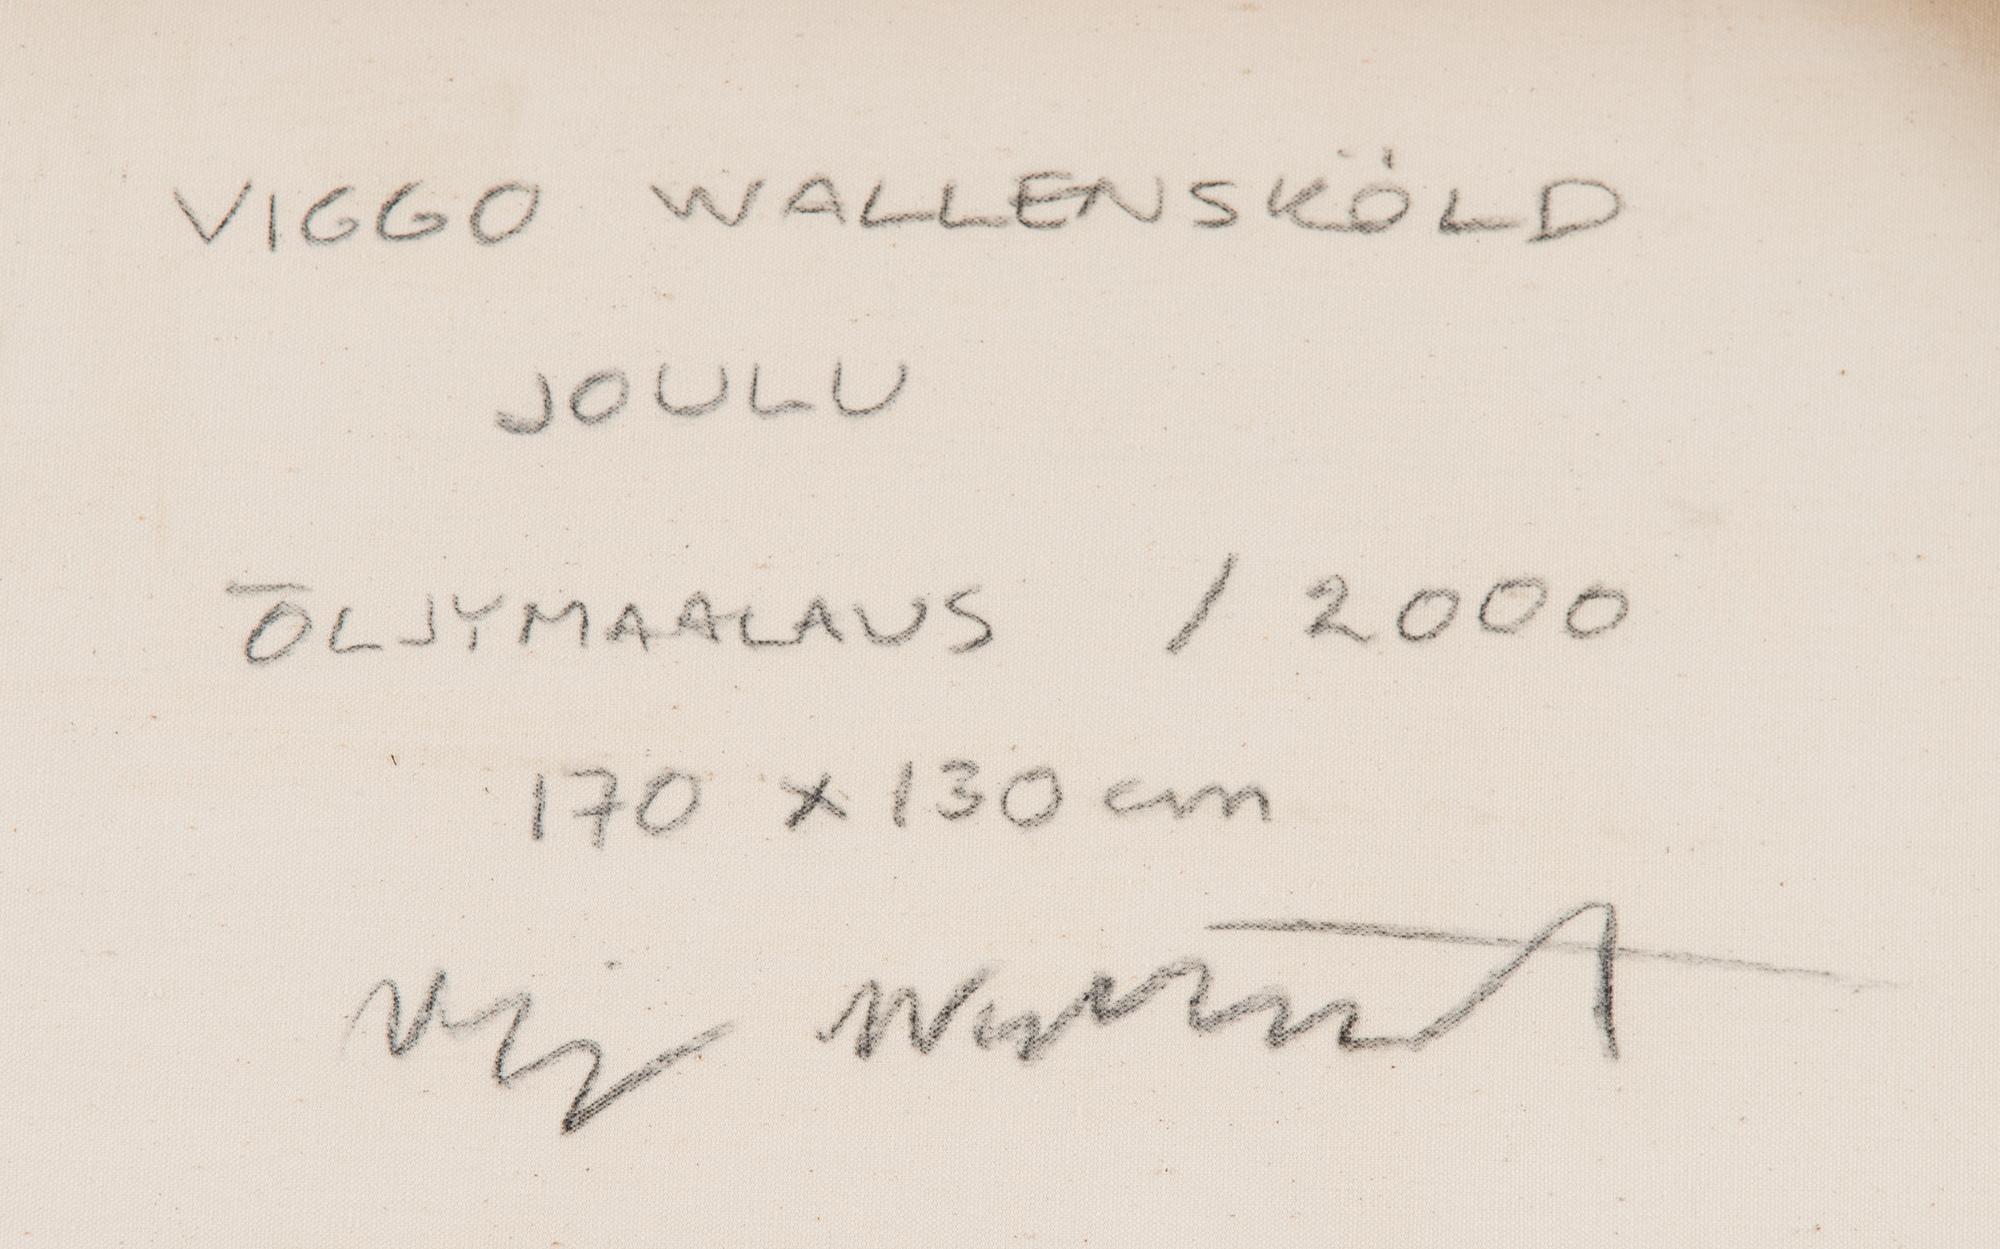 VIGGO WALLENSKÖLD
JOULU
ÖLJYMAALAUS / 2000
170 x 130 cm